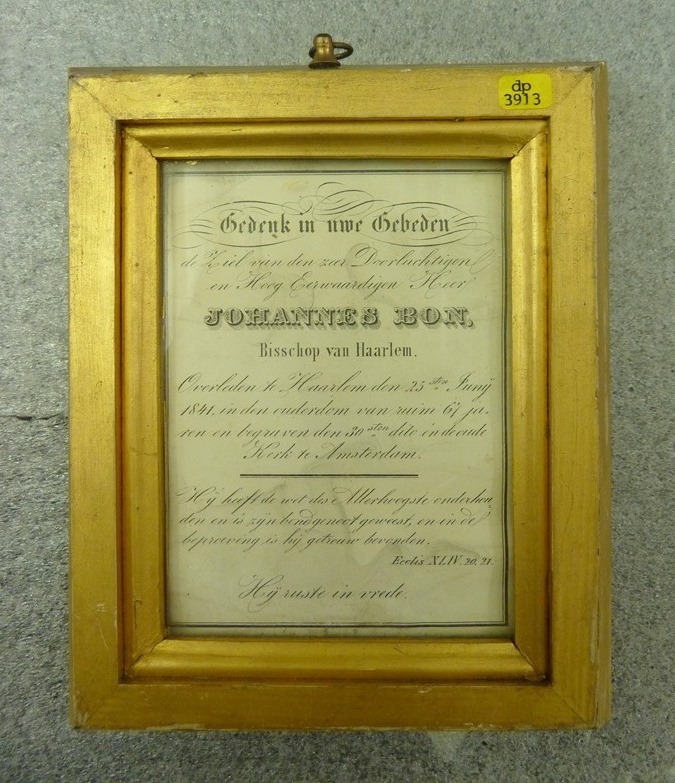 dp
3913
Gedenk in uwe Gebeden
de Ziel van den zeer Doorluchtigen
en Hoog Eerwaardigen Heer
JOHANNES BON,
Bisschop van Haarlem,
Overleden te Haarlem den 25 sten Junÿ
1841, in den ouderdom van ruim 67 ja-
ren en begraven den 30 sten dito in de oude
Kerk te Amsterdam.
Hÿ heeft de wet des Allerhoogste onderhou-
den en is zÿn bondgenoot geweest, en in de
beproeving is hÿ getrouw bevonden.
Ecclis XLIV. 20. 21.
Hÿ ruste in vrede.